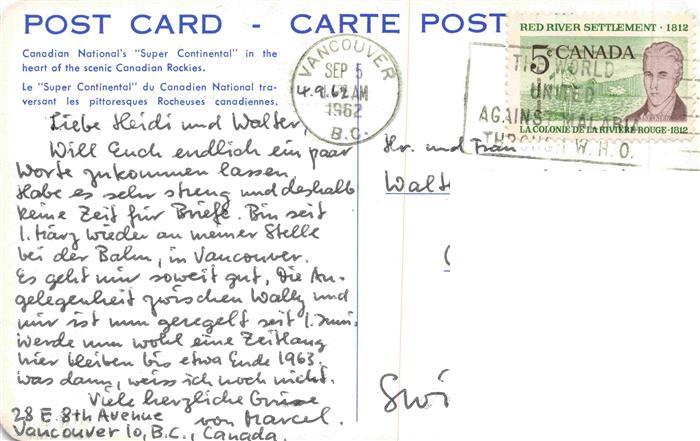 POST CARD - CARTE POST
Canadian National's "Super Continental" in the
heart of the scenic Canadian Rockies.
Le "Super Continental" du Canadien National tra-
versant les pittoresques Rocheuses canadiennes.
VANCOUVER
SEP 5
AM
1962
B.C.
4.9.62
RED RIVER SETTLEMENT · 1812
5¢ CANADA
LA COLONIE DE LA RIVIÈRE ROUGE · 1812
THE WORLD
UNITED
AGAINST MALARIA
THROUGH W.H.O.
Liebe Heidi und Walter,
Will Euch endlich ein paar
Worte zukommen lassen,
Habe es sehr streng und deshalb
keine Zeit für Briefe. Bin seit
1. März wieder an meiner Stelle
bei der Bahn, in Vancouver.
Es geht mir soweit gut, Die An-
gelegenheit zwischen Wally und
mir ist nun geregelt seit 1. Juni.
Werde nun wohl eine Zeitlang
hier bleiben bis etwa Ende 1963.
was dann, weiss ich noch nicht.
Viele herzliche Grüsse
von Marcel.
28 E. 8th Avenue
Vancouver 10, B.C., Canada.
Hr. und Frau
Walt
Swi